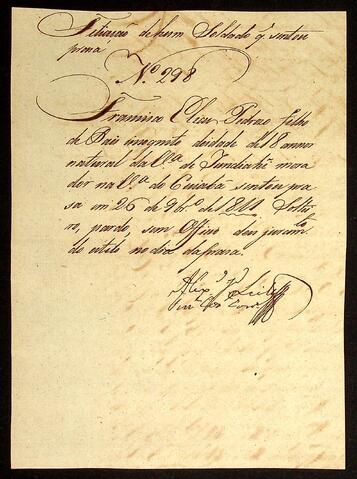 Filiação de hum Soldado q̃ sentou
praça
Nº 298
Francisco Elias Pedrozo filho
de Pais incognito deidade de 18 annos
natural da Vª de Jundiahi mora
dor na Vª de Cuiabá sentou pra
sa em 26 de 9bro de 1811 Soltei
ro, pardo, sem Oficio deu juramto
do estilo no dia da prasa.
Alexe Je Leite